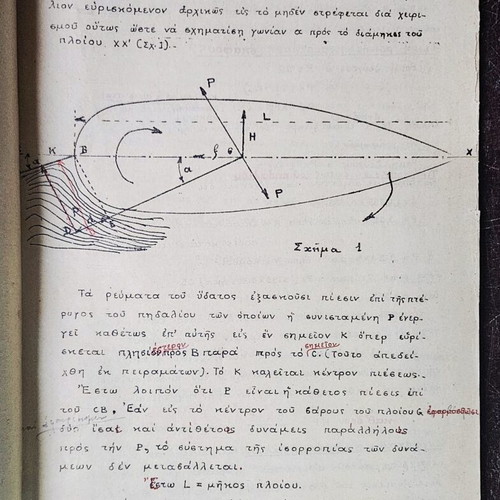 λιον εὑρισκόμενον ἀρχικῶς εἰς τὸ μηδέν στρέφεται διά χειρι-
σμοῦ οὕτως ὥστε νά σχηματίσῃ γωνίαν α πρός τό διάμηκες τοῦ
πλοίου ΧΧ' (Σχ.1).-
P
L
H
K B f G X
α
P
P
D
Σχῆμα 1
Τά ρεύματα τοῦ ὕδατος ἐξασκοῦσι πίεσιν ἐπί τῆς πτέ-
ρυγος τοῦ πηδαλίου τῶν ὁποίων ἡ συνισταμένη P ἐνερ-
γεῖ καθέτως ἐπ' αὐτῆς εἰς ἕν σημεῖον Κ ὅπερ εὑρί-
ὕστερον σημεῖον
σκεται πλησίον πρός Β παρά πρός τό C. (Τοῦτο ἀπεδεί-
χθη ἐκ πειραμάτων). Τό Κ καλεῖται κέντρον πιέσεως.
Ἔστω λοιπόν ὅτι P εἶναι ἡ κάθετος πίεσις ἐπί
τοῦ CB. Ἐάν εἰς τό κέντρον τοῦ βάρους τοῦ πλοίου G ἐφαρμοσθῶσι
δύο ἴσαι καί ἀντίθετοι δυνάμεις παράλληλοι
πρός τήν P, τό σύστημα τῆς ἰσορροπίας τῶν δυνά-
μεων δέν μεταβάλλεται.
Ἔστω L = μῆκος πλοίου.